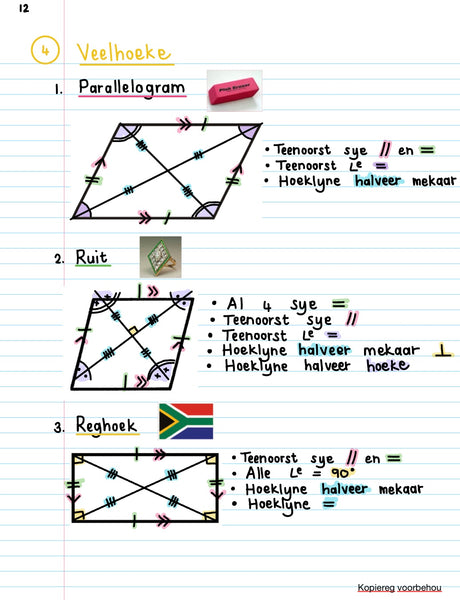 12
4 Veelhoeke
1. Parallelogram
Pink Eraser
• Teenoorst sye // en =
• Teenoorst Lᵉ =
• Hoeklyne halveer mekaar
2. Ruit
• Al 4 sye =
• Teenoorst sye //
• Teenoorst Lᵉ =
• Hoeklyne halveer mekaar ⊥
• Hoeklyne halveer hoeke
3. Reghoek
• Teenoorst sye // en =
• Alle Lᵉ = 90°
• Hoeklyne halveer mekaar
• Hoeklyne =
Kopiereg voorbehou